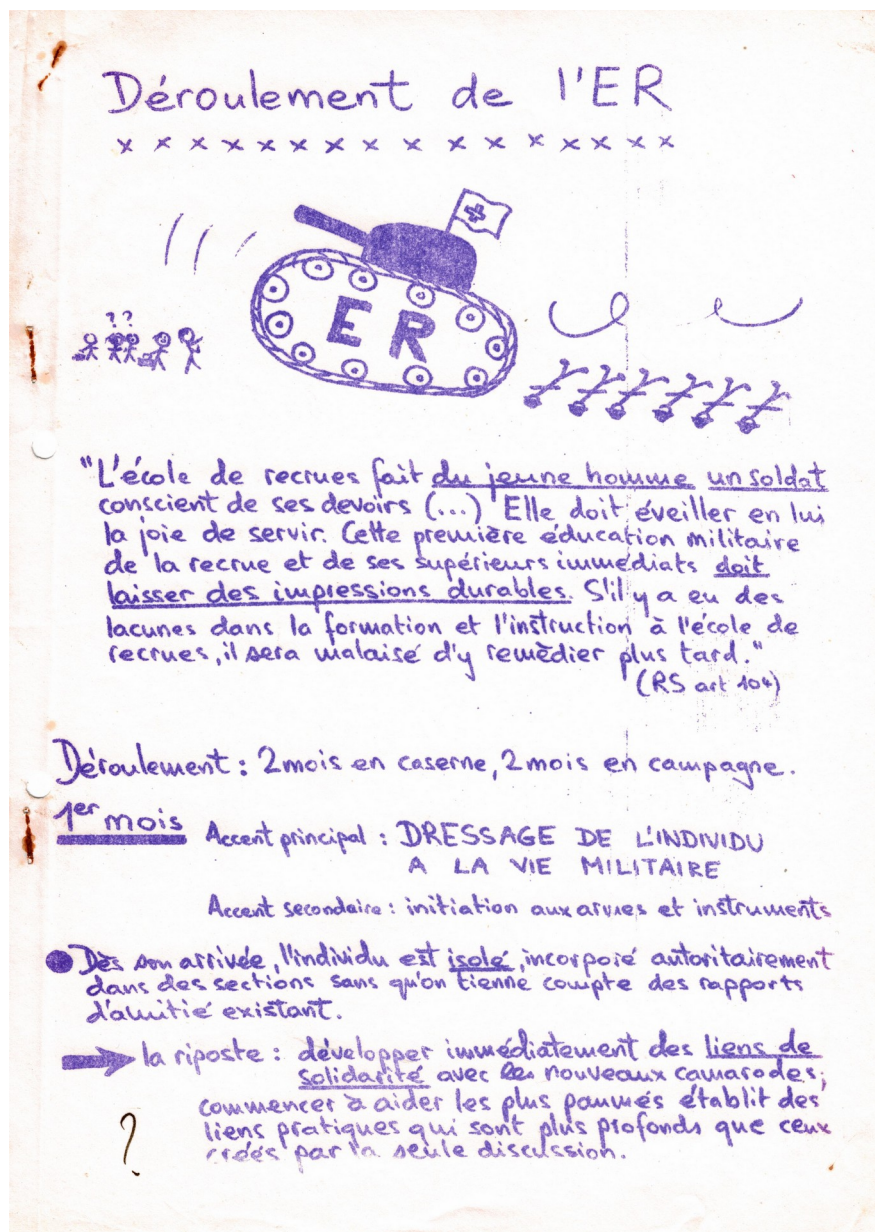 Déroulement de l'ER
x x x x x x x x x x x x x x x x
??
ER
"L'école de recrues fait du jeune homme un soldat
conscient de ses devoirs (...) Elle doit éveiller en lui
la joie de servir. Cette première éducation militaire
de la recrue et de ses supérieurs immédiats doit
laisser des impressions durables. S'il y a eu des
lacunes dans la formation et l'instruction à l'école de
recrues, il sera malaisé d'y remédier plus tard."
(RS art 104)
Déroulement : 2 mois en caserne, 2 mois en campagne.
1er mois
Accent principal : DRESSAGE DE L'INDIVIDU
A LA VIE MILITAIRE
Accent secondaire : initiation aux armes et instruments
Dès son arrivée, l'individu est isolé, incorporé autoritairement
dans des sections sans qu'on tienne compte des rapports
d'amitié existant.
la riposte : développer immédiatement des liens de
solidarité avec les nouveaux camarades;
commencer à aider les plus paumés établit des
liens pratiques qui sont plus profonds que ceux
créés par la seule discussion.
?